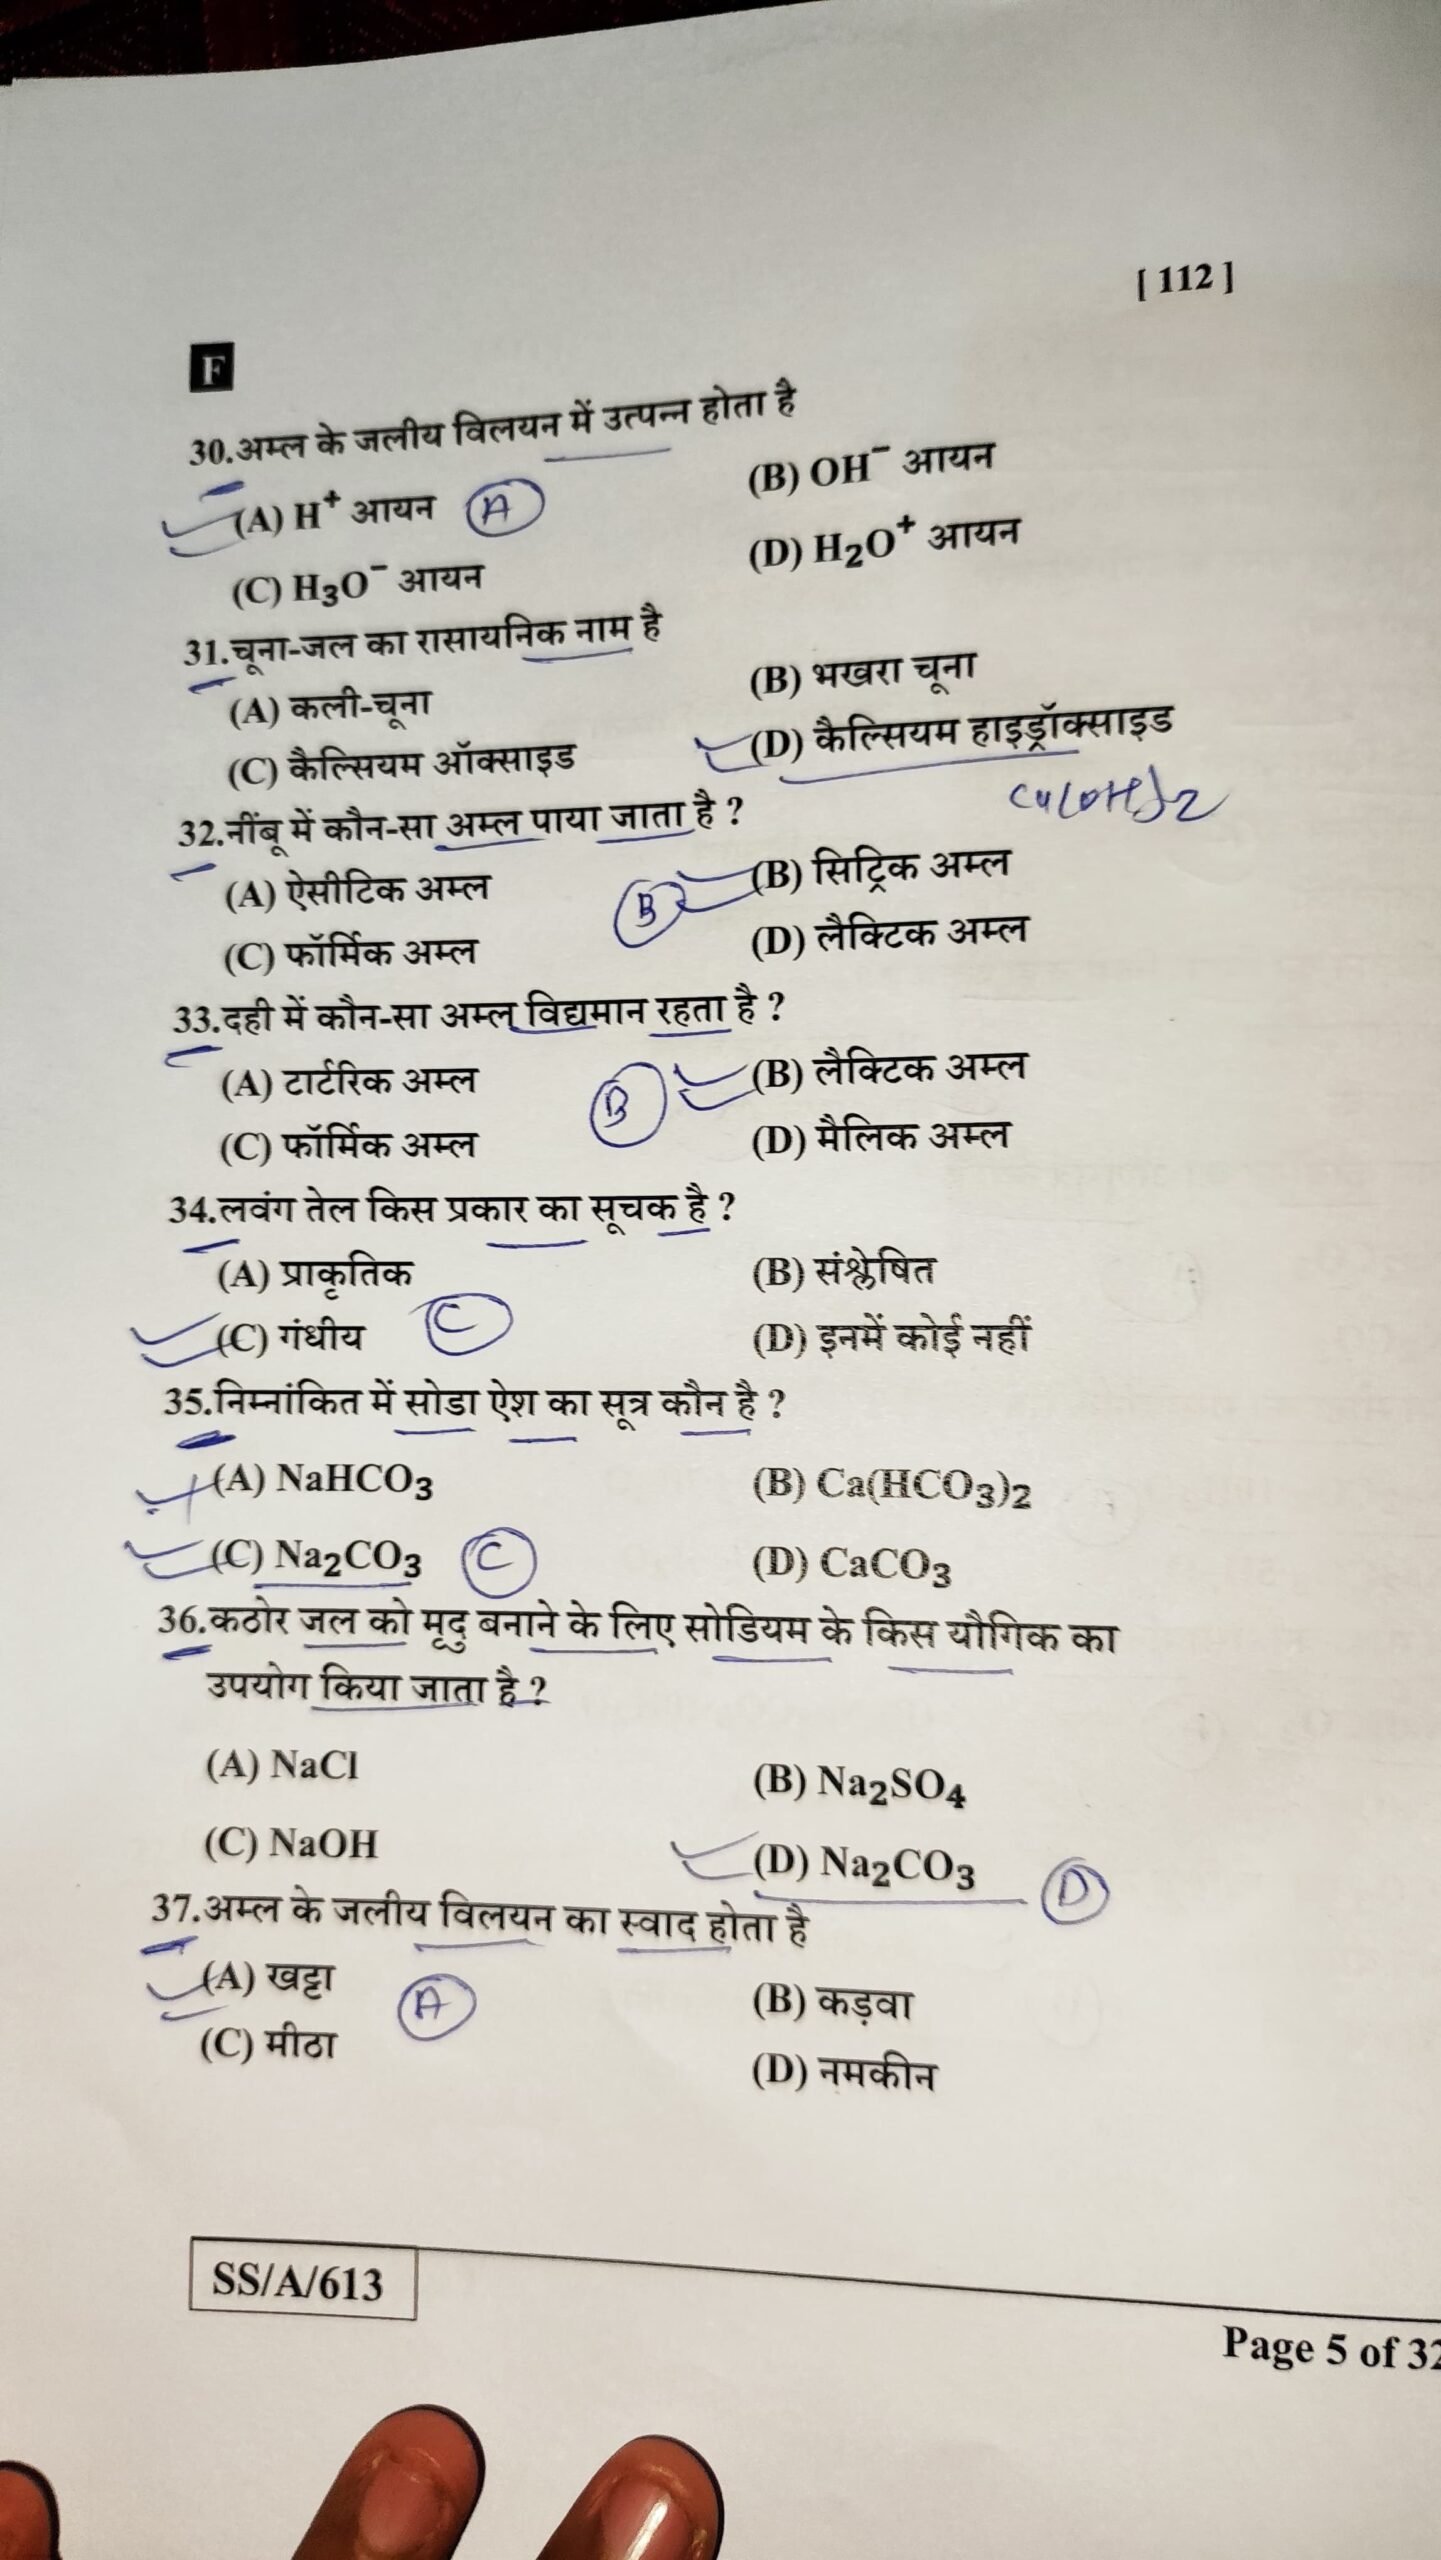 [ 112 ]
F
30.अम्ल के जलीय विलयन में उत्पन्न होता है
(A) H⁺ आयन A (B) OH⁻ आयन
(C) H₃O⁻ आयन (D) H₂O⁺ आयन
31.चूना-जल का रासायनिक नाम है
(A) कली-चूना (B) भखरा चूना
(C) कैल्सियम ऑक्साइड (D) कैल्सियम हाइड्रॉक्साइड
Ca(OH)2
32.नींबू में कौन-सा अम्ल पाया जाता है ?
(A) ऐसीटिक अम्ल B (B) सिट्रिक अम्ल
(C) फॉर्मिक अम्ल (D) लैक्टिक अम्ल
33.दही में कौन-सा अम्ल विद्यमान रहता है ?
(A) टार्टरिक अम्ल B (B) लैक्टिक अम्ल
(C) फॉर्मिक अम्ल (D) मैलिक अम्ल
34.लवंग तेल किस प्रकार का सूचक है ?
(A) प्राकृतिक (B) संश्लेषित
(C) गंधीय C (D) इनमें कोई नहीं
35.निम्नांकित में सोडा ऐश का सूत्र कौन है ?
(A) NaHCO₃ (B) Ca(HCO₃)₂
(C) Na₂CO₃ C (D) CaCO₃
36.कठोर जल को मृदु बनाने के लिए सोडियम के किस यौगिक का
उपयोग किया जाता है ?
(A) NaCl (B) Na₂SO₄
(C) NaOH (D) Na₂CO₃ D
37.अम्ल के जलीय विलयन का स्वाद होता है
(A) खट्टा A (B) कड़वा
(C) मीठा (D) नमकीन
SS/A/613
Page 5 of 32